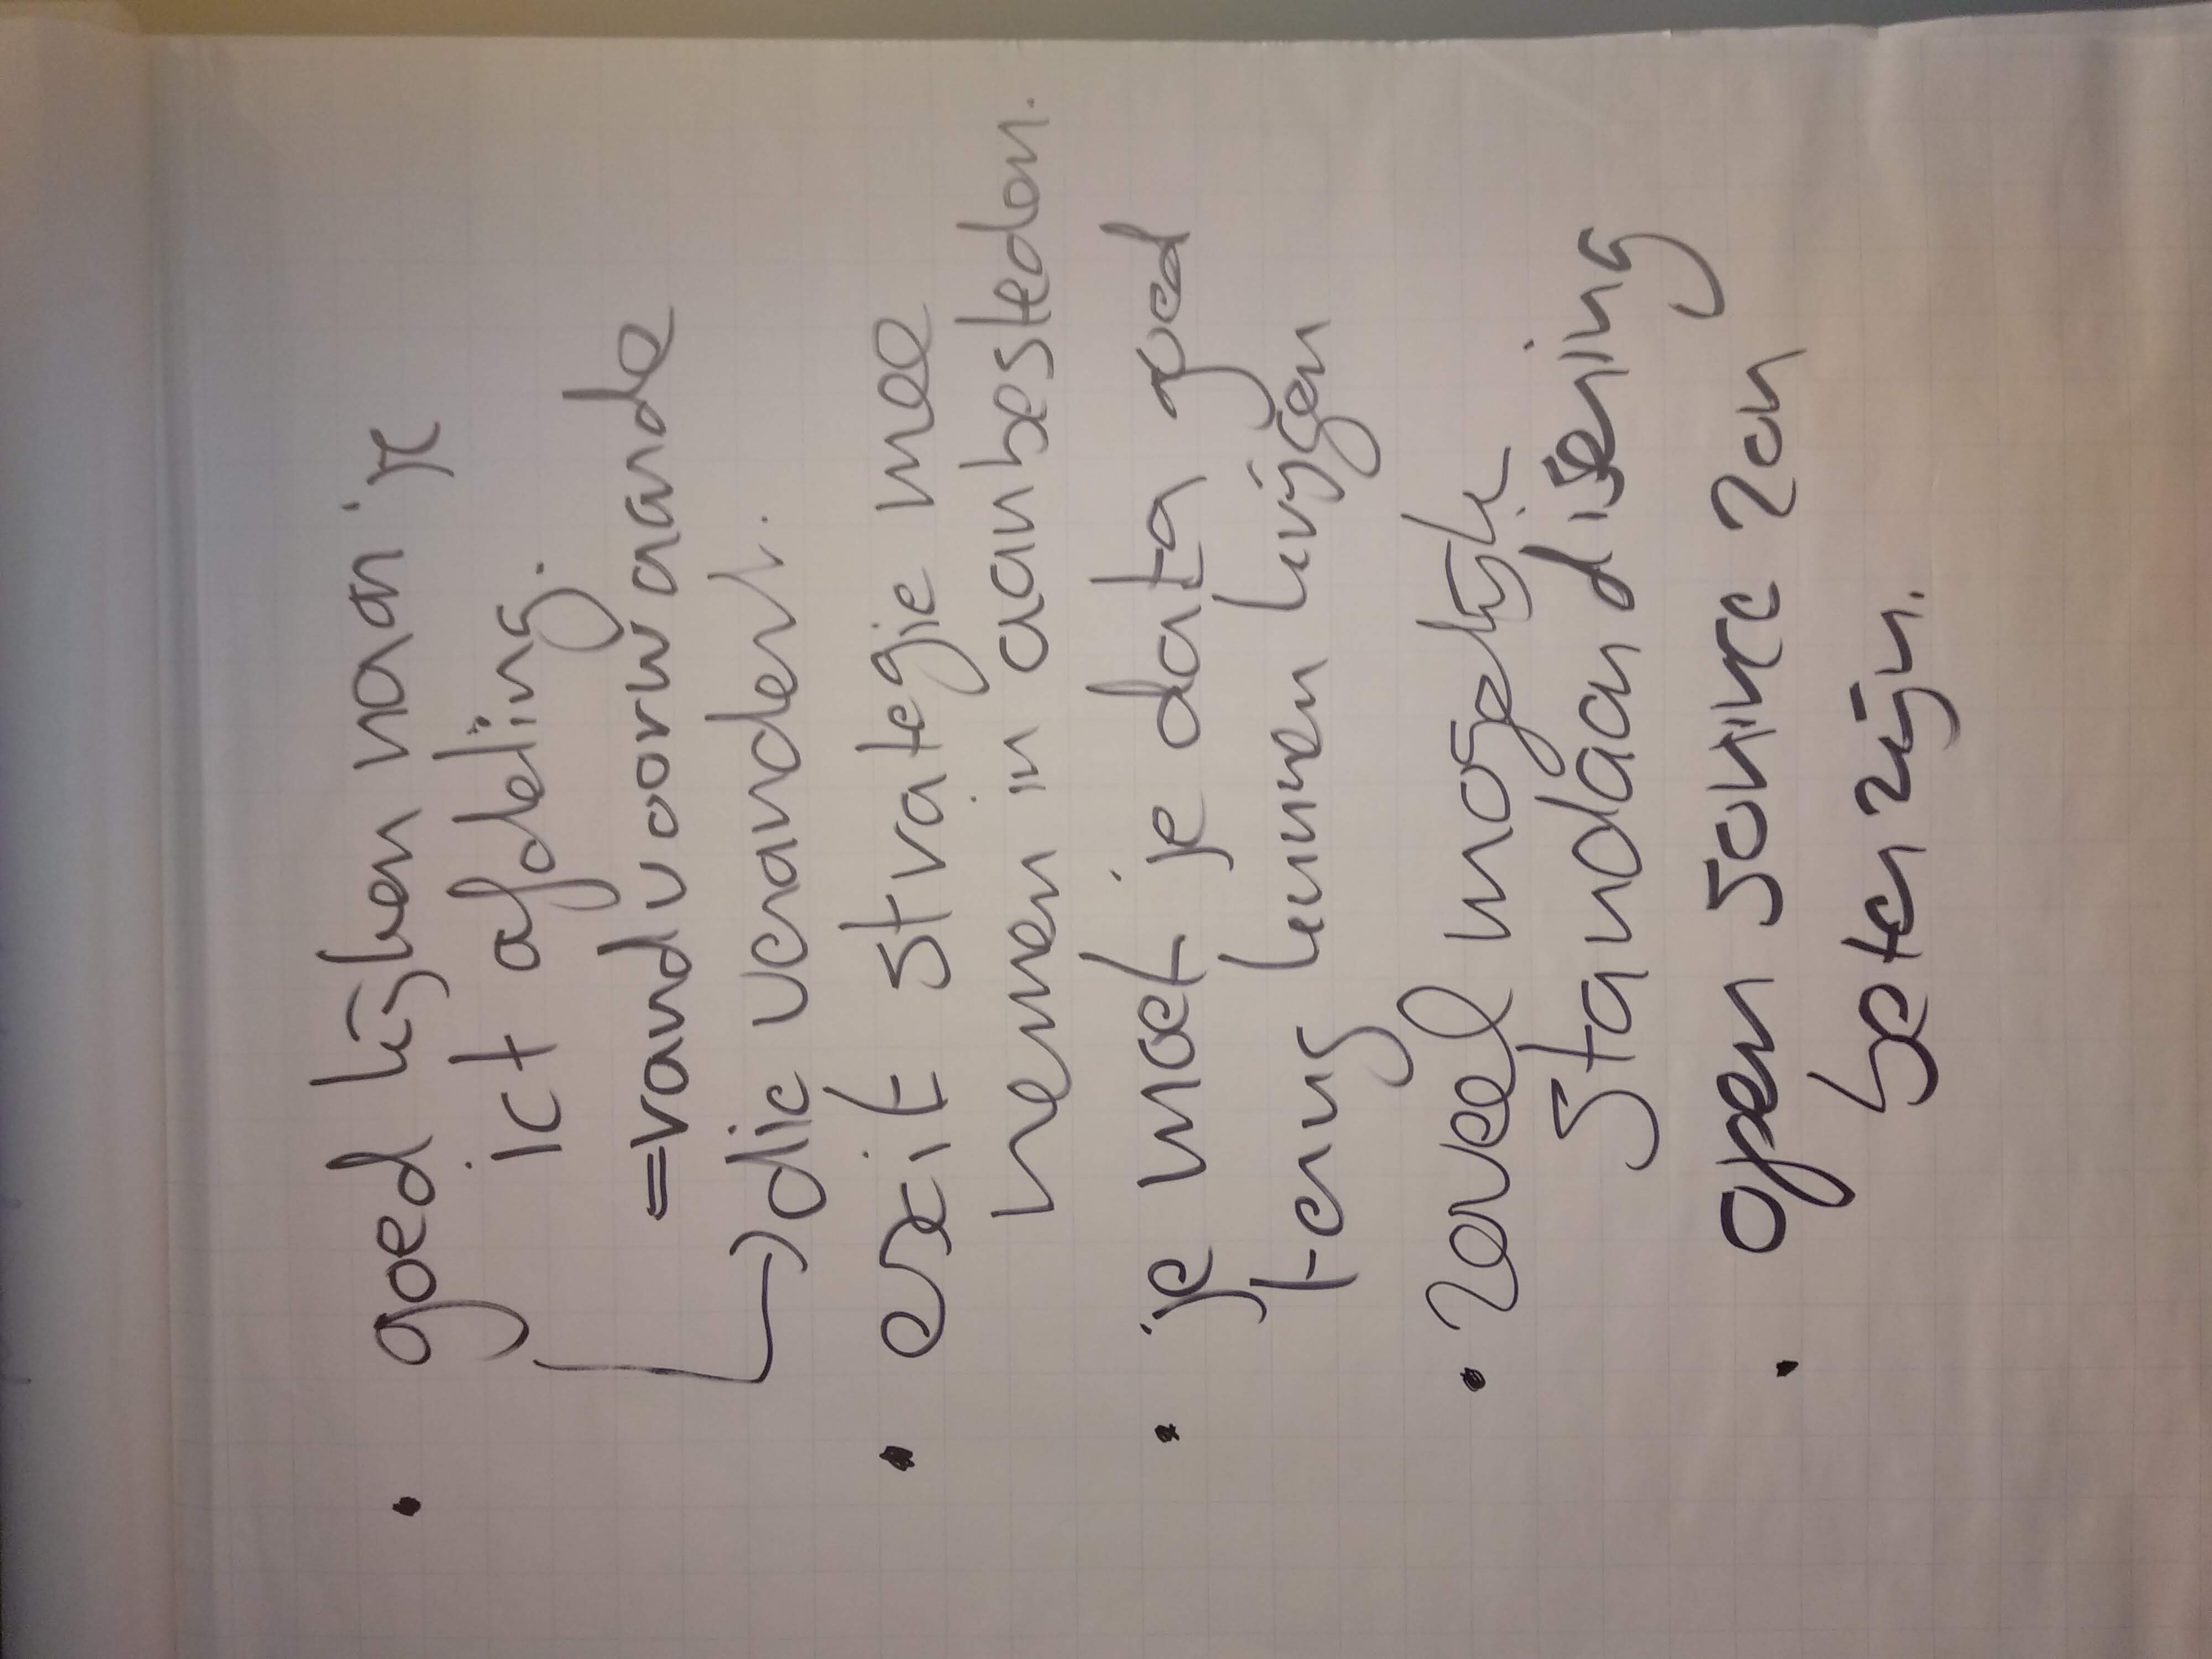 • goed kijken naar je
ict afdeling.
= randvoorwaarde
↳ die verandert.
• exit strategie mee
nemen in aanbesteden.
• je moet je data goed
terug kunnen krijgen
• zoveel mogelijk
standaardisering
• open source zou
beter zijn.